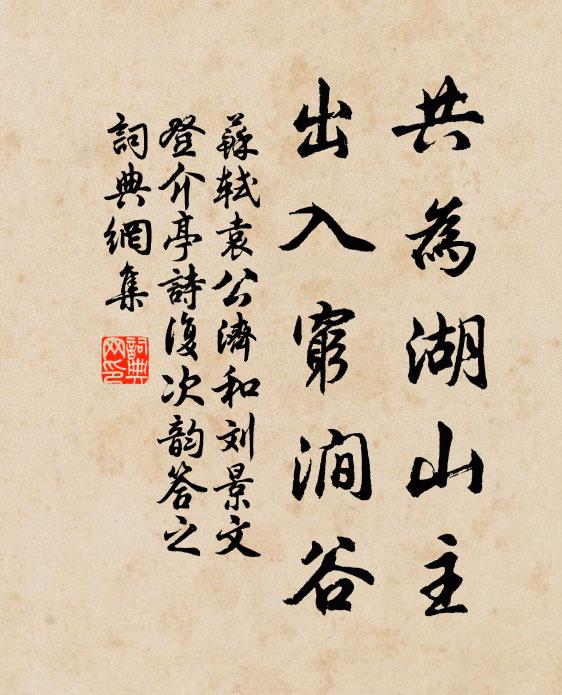 共為湖山主
出入窮澗谷
蘇軾袁公濟和刘景文
登介亭詩復次韵答之
詞典網集
詞典
网印